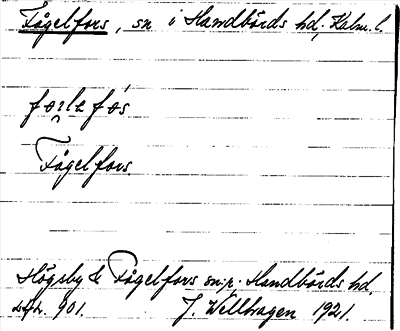 Fågelfors, sn i Handbörds hd, Kalm. l.
Fågelfors
Högsby & Fågelfors sn:r. Handbörds hd,
901. J. Wellhagen 1921.